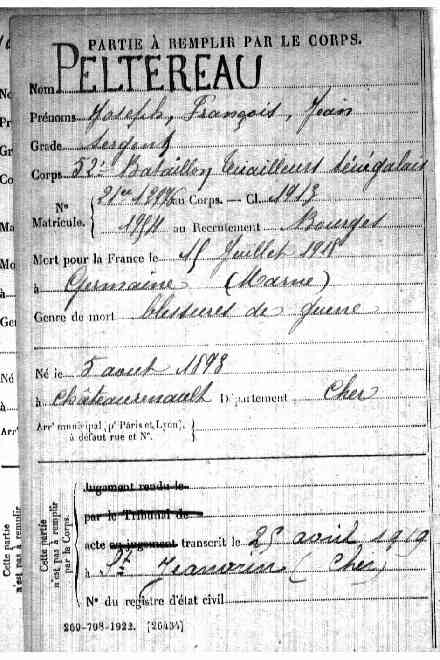 PARTIE À REMPLIR PAR LE CORPS.
Nom PELTEREAU
Prénoms Joseph, François, Jean
Grade Sergent
Corps 52e Bataillon Tirailleurs Sénégalais
Nº Matricule. au Corps. — Cl. 1913
au Recrutement Bourges
Mort pour la France le 15 Juillet 1918
à Germaine (Marne)
Genre de mort blessures de guerre
Né le 5 août
à Châteaurenault Département Cher
Arrt municipal (pr Paris et Lyon), à défaut rue et Nº.
Cette partie n'est pas à remplir par le Corps
jugement rendu le
par le Tribunal de
acte ou jugement transcrit le 25 avril 1919
à St (Cher)
Nº du registre d'état civil
260-708-1922. [26434]
Cette partie
n'est pas à remplir